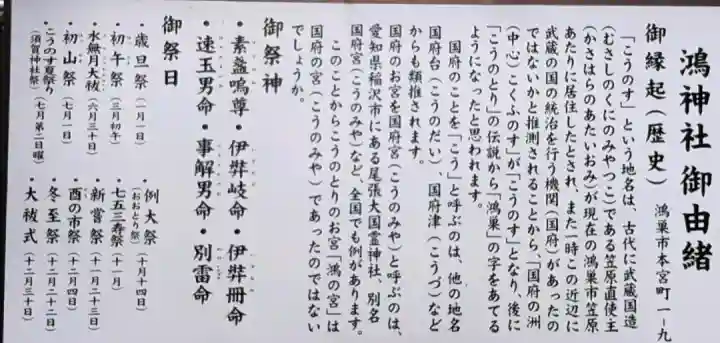 鴻神社 御由緒
御縁起(歴史)
鴻巣市本宮町一ー九
「こうのす」という地名は、古代に武蔵国造
(むさしのくにのみやつこ)である笠原直使主
(かさはらのあたいおみ)が現在の鴻巣市笠原
あたりに居住したとされ、また一時この近辺に
武蔵の国の統治を行う機関(国府)があったの
ではないかと推測されることから、「国府の洲
(中心)こくふのす」が「こうのす」となり、後に
「こうのとり」の伝説から「鴻巣」の字をあてる
ようになったと思われます。
国府のことを「こう」と呼ぶのは、他の地名
国府台(こうのだい)、国府津(こうづ)など
からも類推されます。
国府のお宮を国府宮(こうのみや)と呼ぶのは、
愛知県稲沢市にある尾張大国霊神社、別名
国府宮(こうのみや)など、全国でも例があります。
このことからこうのとりのお宮「鴻の宮」は
国府の宮(こうのみや)であったのではない
でしょうか。
御祭神
・素盞嗚尊・伊弉岐命・伊弉冊命
・速玉男命・事解男命・別雷命
御祭日
・歳旦祭(一月一日)
・初午祭(三月初午)
・水無月大祓(六月三十日)
・初山祭(七月一日)
・こうのす夏祭り
(須賀神社祭)(七月第二日曜)
・例大祭(十月十四日)
(おおとり祭)
・七五三寿祭(十一月)
・新嘗祭(十一月二十三日)
・酉の市祭(十二月四日)
・冬至祭(十二月二十二日)
・大祓式(十二月三十日)